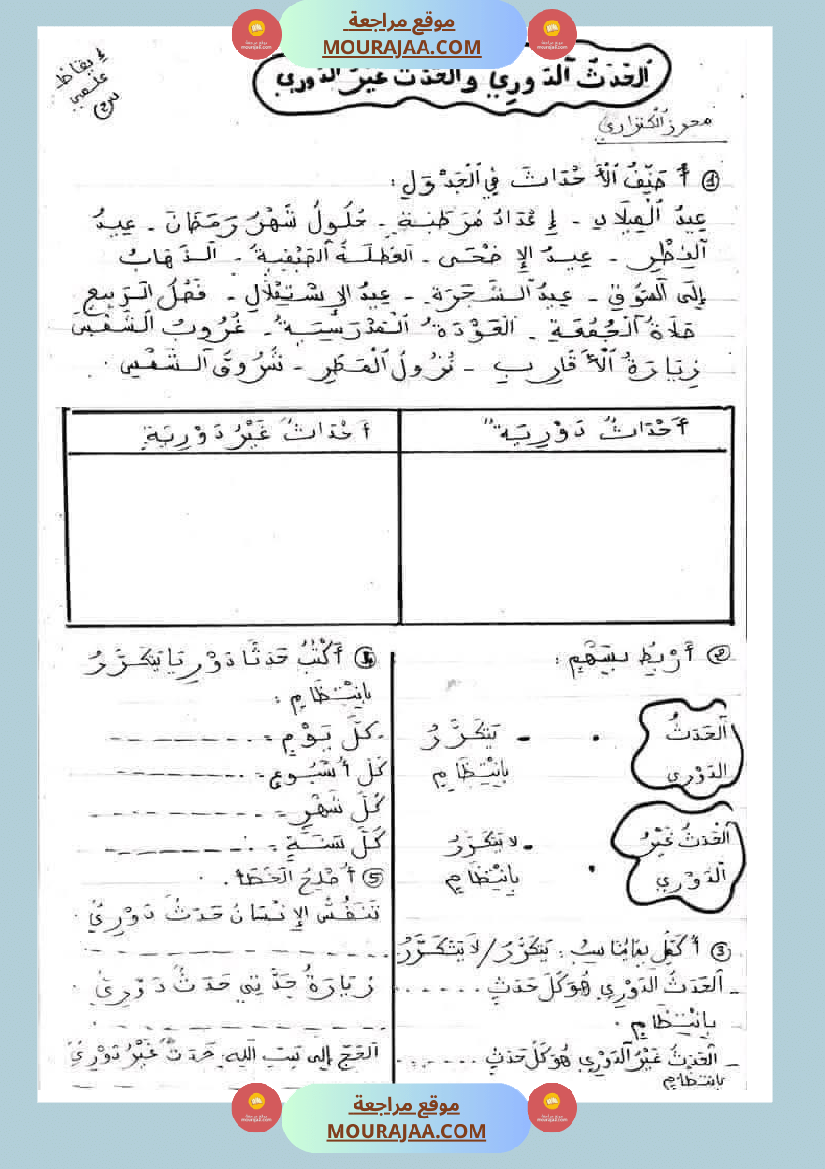 موقع مراجعة
MOURAJAA.COM
إيقاظ
علمي
اَلْحَدَثُ اَلدَّوْرِي وَالْحَدَثُ غَيْرُ الدَّوْرِي
محرز الكنزاري
① أُصَنِّفُ الْأَحْدَاثَ فِي الْجَدْوَلِ :
عِيدُ الْمِيلَادِ - إِعْدَادُ مُرَطِّبَةٍ - حُلُولُ شَهْرُ رَمَضَانَ - عِيدُ
الْفِطْرِ - عِيدُ الإِضْحَى - العُطْلَةُ الصَّيْفِيَّةُ - الذَّهَابُ
إِلَى السُّوقِ - عِيدُ الشَّجَرَةِ - عِيدُ الاِسْتِقْلَالِ - فَصْلُ الرَّبِيعِ
صَلَاةُ الْجُمُعَةِ - الْعَوْدَةُ الْمَدْرَسِيَّةُ - غُرُوبُ الشَّمْسِ
زِيَارَةُ الْأَقَارِبِ - نُزُولُ الْمَطَرِ - شُرُوقُ الشَّمْسِ .
أَحْدَاثٌ دَوْرِيَّةٌ
أَحْدَاثٌ غَيْرُ دَوْرِيَّةٍ
② أَرْبِطُ بِسَهْمٍ :
اَلْحَدَثُ
الدَّوْرِي
- يَتَكَرَّرُ
بِانْتِظَامٍ
اَلْحَدَثُ غَيْرُ
اَلدَّوْرِي
- لا يَتَكَرَّرُ
بِانْتِظَامٍ
③ أُكْمِلُ بِمَا يُنَاسِبُ : يَتَكَرَّرُ / لَا يَتَكَرَّرُ
- اَلْحَدَثُ الدَّوْرِي هُوَ كُلُّ حَدَثٍ ......
بِانْتِظَامٍ .
- الْحَدَثُ غَيْرُ الدَّوْرِي هُوَ كُلُّ حَدَثٍ ......
بِانْتِظَامٍ
④ أَكْتُبُ حَدَثًا دَوْرِيًّا يَتَكَرَّرُ
بِانْتِظَامٍ :
كُلَّ يَوْمٍ :
كُلَّ أُسْبُوعٍ :
كُلَّ شَهْرٍ :
كُلَّ سَنَةٍ :
⑤ أُصْلِحُ الْخَطَأَ .
تَنَفُّسُ الإِنْسَانُ حَدَثٌ دَوْرِيٌّ .
زِيَارَةُ جَدَّتِي حَدَثٌ دَوْرِيٌّ .
الْحَجُّ إِلَى بَيْتِ اللهِ حَدَثٌ غَيْرُ دَوْرِيٍّ
موقع مراجعة
MOURAJAA.COM